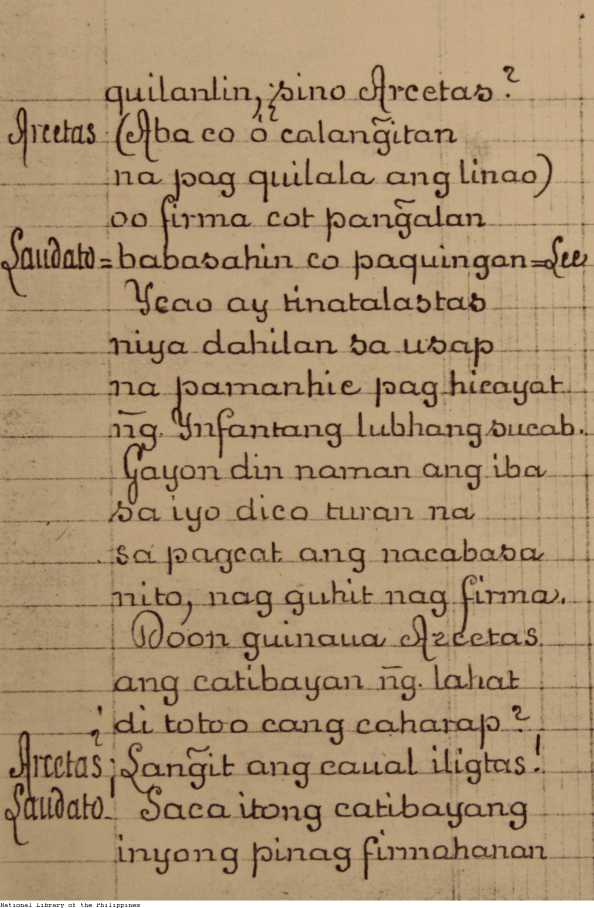 quilanlin, ¿sino Arcetas?
Arcetas (Aba co ó calang̃itan
na pag quilala ang linao)
oo firma cot pang̃alan
Laudato = babasahin co paquingan = Lee
Ycao ay tinatalastas
niya dahilan sa usap
na pamanhic pag hicayat
n͠g. Ynfantang lubhang sucab.
Gayon din naman ang iba
sa iyo dico turan na
sa pagcat ang nacabasa
nito, nag guhit nag firma.
Doon guinaua Arcetas
ang catibayan n͠g. lahat
¿di totoo cang caharap?
Arcetas ¡Lang̃it ang caual iligtas!
Laudato. Saca itong catibayang
inyong pinag firmahanan
National Library of the Philippines